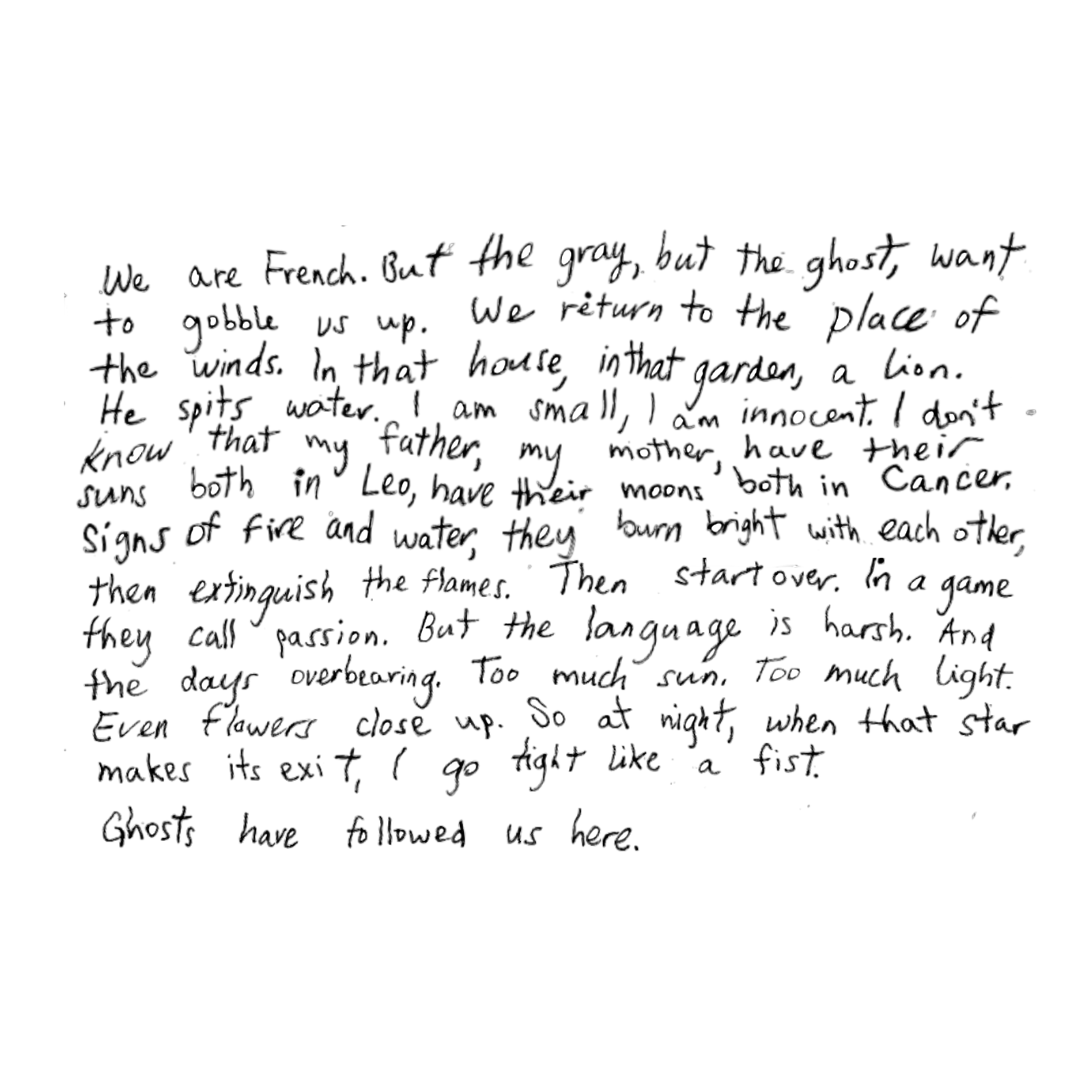 We are French. But the gray, but the ghost, want
to gobble us up. We return to the place of
the winds. In that house, in that garden, a lion.
He spits water. I am small, I am innocent. I don't
know that my father, my mother, have their
suns both in Leo, have their moons both in Cancer.
Signs of fire and water, they burn bright with each other,
then extinguish the flames. Then start over. In a game
they call passion. But the language is harsh. And
the days overbearing. Too much sun. Too much light.
Even flowers close up. So at night, when that star
makes its exit, I go tight like a fist.
Ghosts have followed us here.